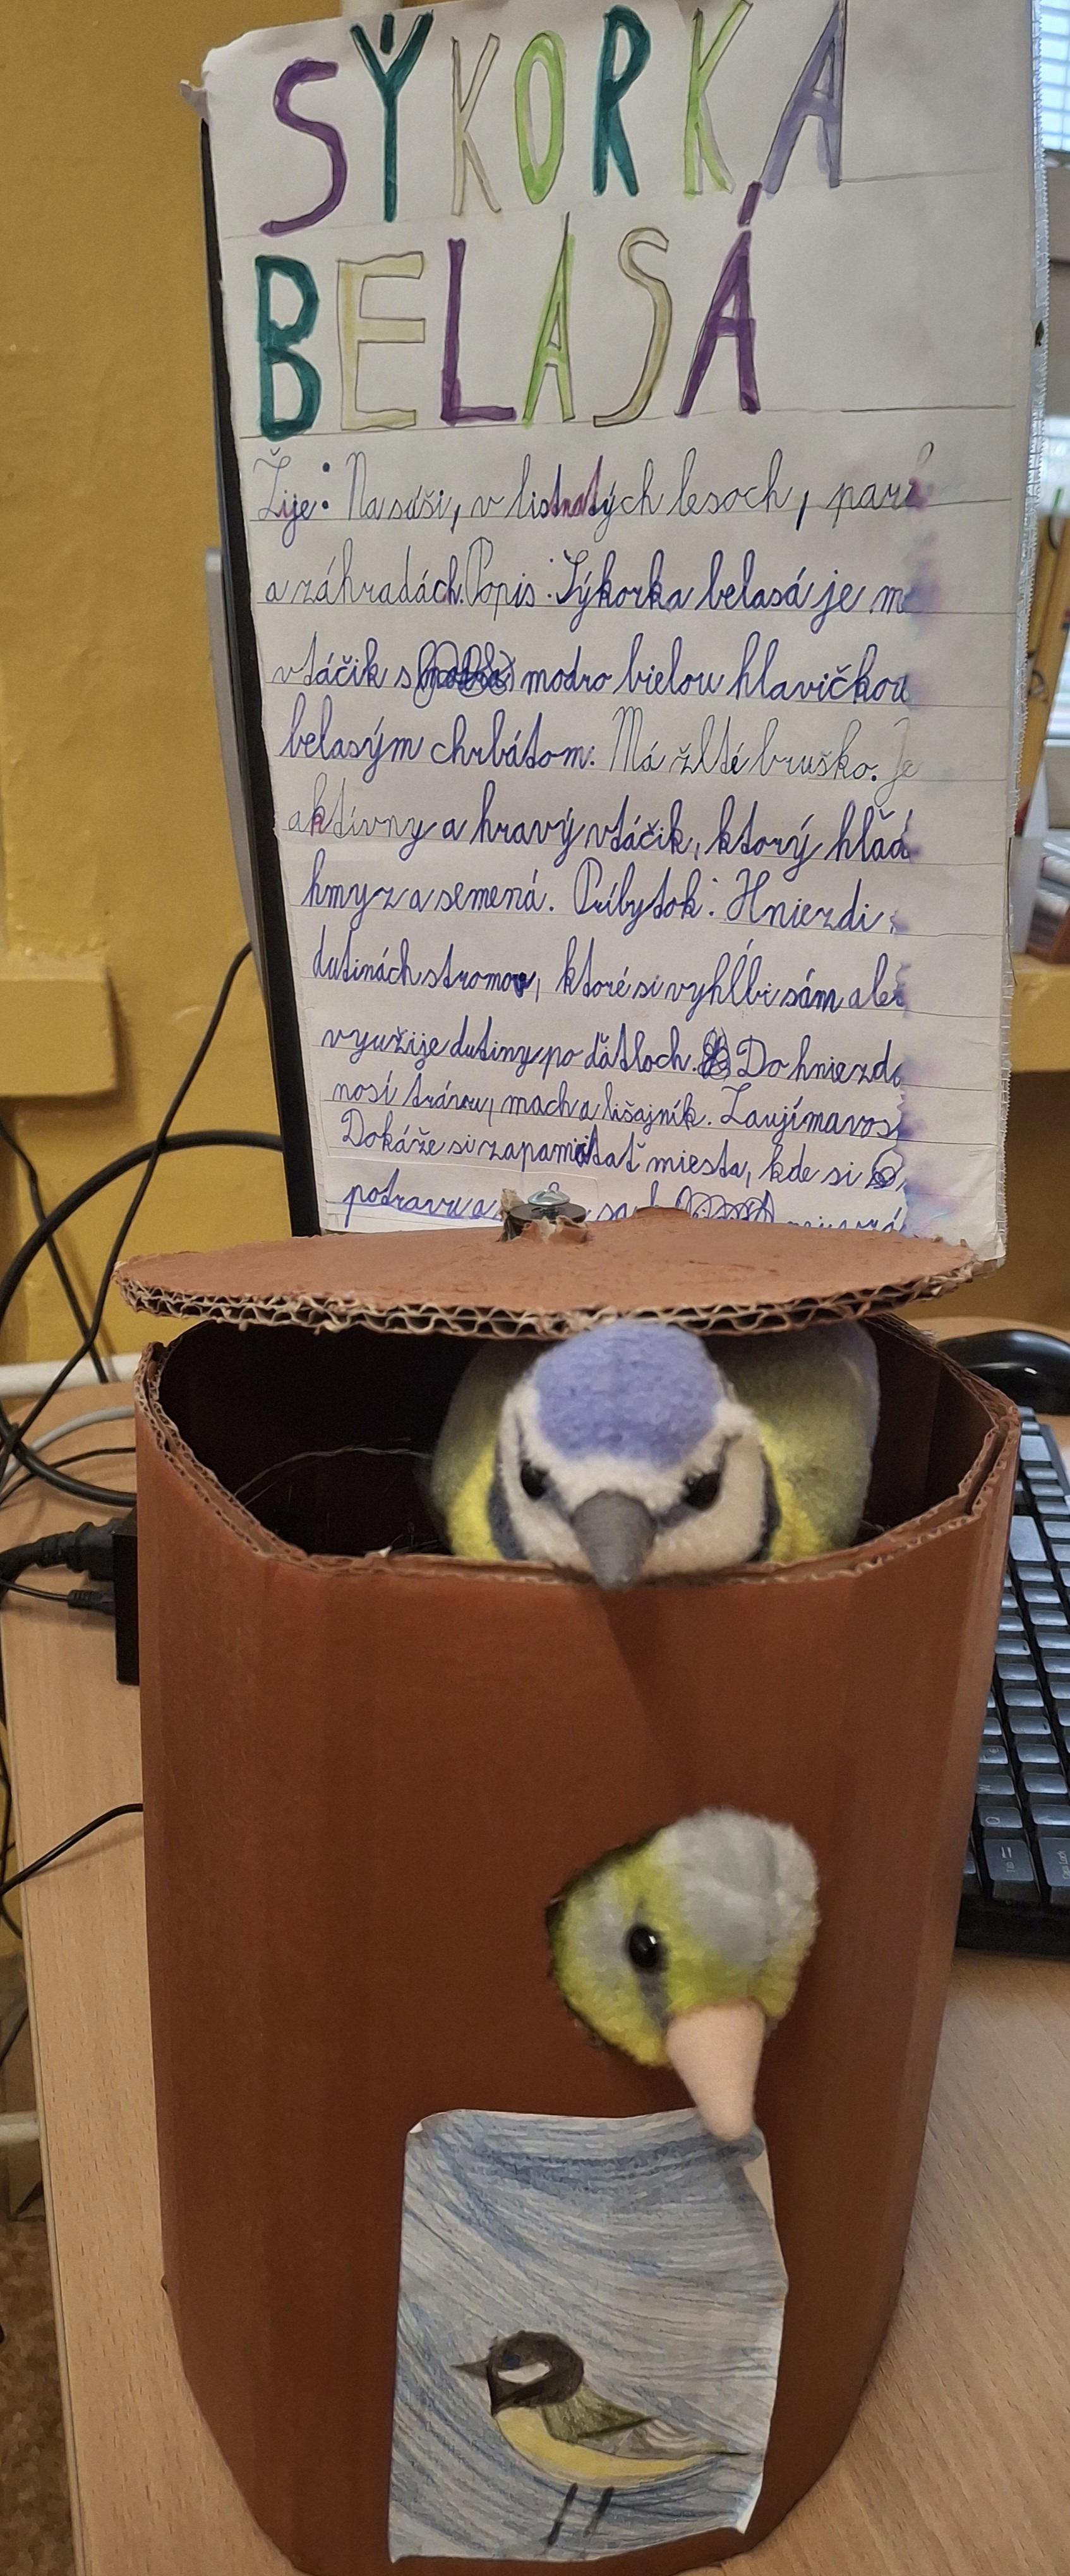 SÝKORKA
BELASÁ
Žije: Na súši, v listnatých lesoch,
a záhradách. Popis: Sýkorka belasá je
vtáčik s modro bielou hlavičkou
belasým chrbátom. Má žlté bruško. Je
aktívny a hravý vtáčik, ktorý hľad
hmyz a semená. Príbytok: Hniezdi
dutinách stromov, ktoré si vyhĺbi sám ale
využije dutiny po ďatloch. Do hniezda
nosí trávu, mach a lišajník. Zaujímavos
Dokáže si zapamätať miesta, kde si
potravu a